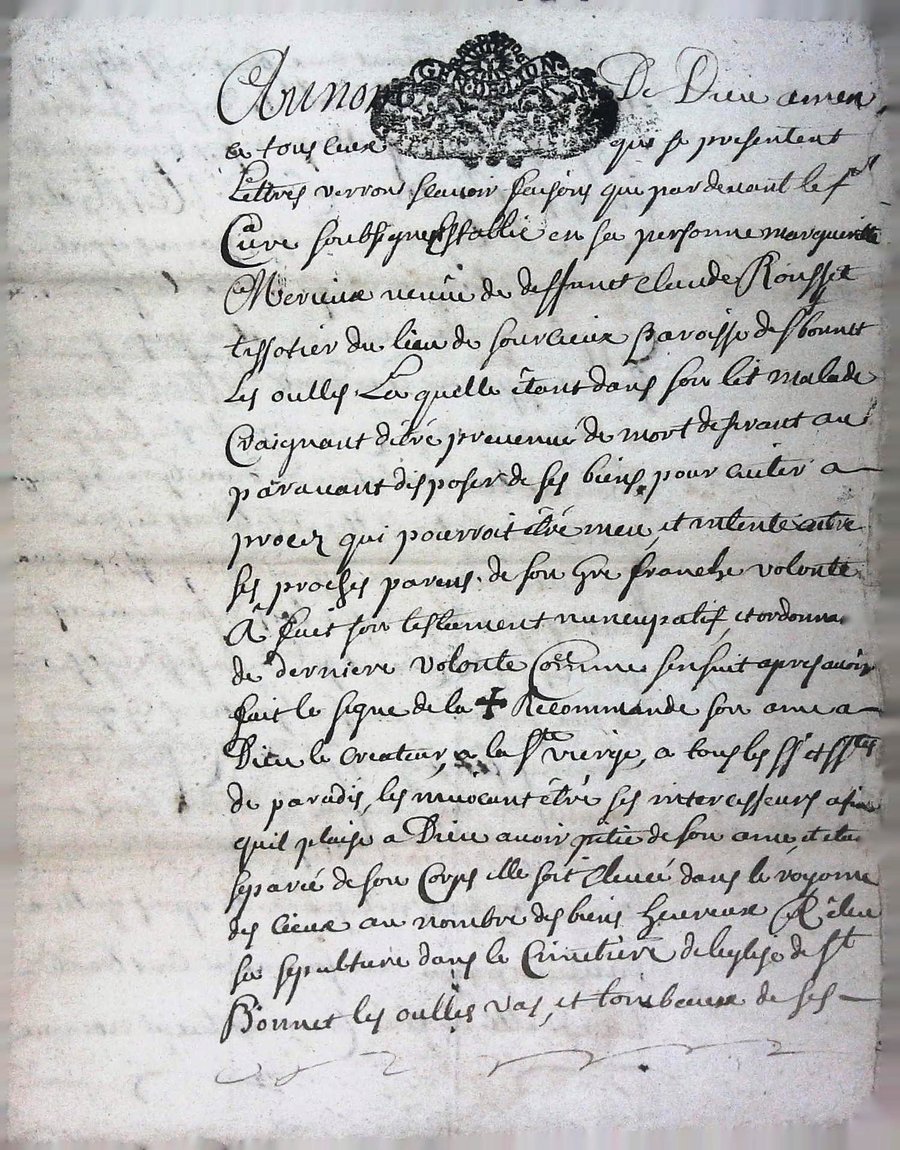 Au nom De Dieu amen,
a tous ceux qui se presentent
Lettres verront scavoir faisons que par devant le
Curé soubsigné establie en sa personne marguerite
Merieux veuve de deffunct Claude Rousset
tissotier du lieu de sourcieux Paroisse de st bonnet
Les oulles. La quelle étant dans son lit malade
Craignant d'étré prevenué de mort desirant au
paravant disposer de ses biens, pour eviter a
procez qui pourroit étré meu, et intenté entre
ses proches parens. de son gré franche volonté
A fait son testament nuncupatif, et ordonna
de derniere volonté Comme sensuit apres avoir
fait le signe de la ✝ Recommande son ame a
Dieu le createur, a la Ste vierge, a tous les SS et SStes
de paradis, les invocant étré ses intercesseurs afin
quil plaise a Dieu avoir pitié de son ame, et elle
separée de son Corps elle soit elevée dans le royome
des cieux au nombre des biens heureux Eslue
sa sepulture dans le Cimetiere de leglise de St
Bonnet les oulles vas, et tombeaux de ses